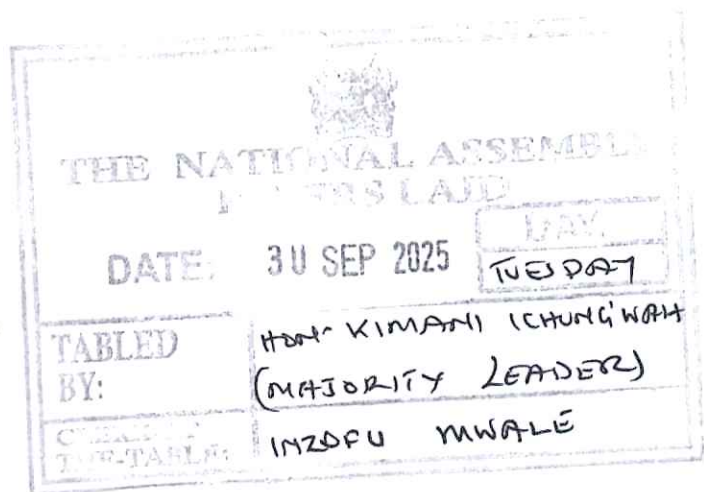 THE NATIONAL ASSEMBLY
PAPERS LAID
DATE: 30 SEP 2025
DAY.
TUESDAY
TABLED BY:
HON. KIMANI ICHUNG'WAH
(MAJORITY LEADER)
THE-TABLE:
INZOFU MWALE